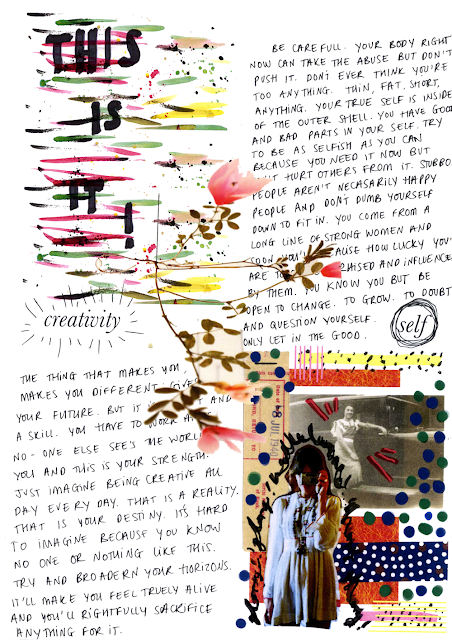 THIS
IS
IT!
BE CAREFULL. YOUR BODY RIGHT
NOW CAN TAKE THE ABUSE BUT DON'T
PUSH IT. DON'T EVER THINK YOU'RE
TOO ANYTHING. THIN, FAT. SHORT,
ANYTHING. YOUR TRUE SELF IS INSIDE
OF THE OUTER SHELL. YOU HAVE GOOD
AND BAD PARTS IN YOUR SELF. TRY
TO BE AS SELFISH AS YOU CAN
BECAUSE YOU NEED IT NOW BUT
HURT OTHERS FROM IT.
PEOPLE AREN'T NECASARILY HAPPY
PEOPLE AND DON'T DUMB YOURSELF
DOWN TO FIT IN. YOU COME FROM A
LONG LINE OF STRONG WOMEN AND
HOW LUCKY
ARE AND INFLUENCE
BY THEM. YOU KNOW YOU BUT BE
OPEN TO CHANGE. TO GROW. TO DOUBT
AND QUESTION YOURSELF.
ONLY LET IN THE GOOD.
self
creativity
THE THING THAT MAKES YOU
MAKES YOU DIFFERENT
YOUR FUTURE. BUT IT AND
A SKILL. YOU HAVE TO WORK
NO-ONE ELSE SEE'S THE WORLD
YOU AND THIS IS YOUR STRENGTH.
JUST IMAGINE BEING CREATIVE ALL
DAY EVERY DAY. THAT IS A REALITY.
THAT IS YOUR DESTINY. IT'S HARD
TO IMAGINE BECAUSE YOU KNOW
NO ONE OR NOTHING LIKE THIS.
TRY AND BROADERN YOUR HORIZONS.
IT'LL MAKE YOU FEEL TRUELY ALIVE
AND YOU'LL RIGHTFULLY SACRIFICE
ANYTHING FOR IT.
8 JUL 1940